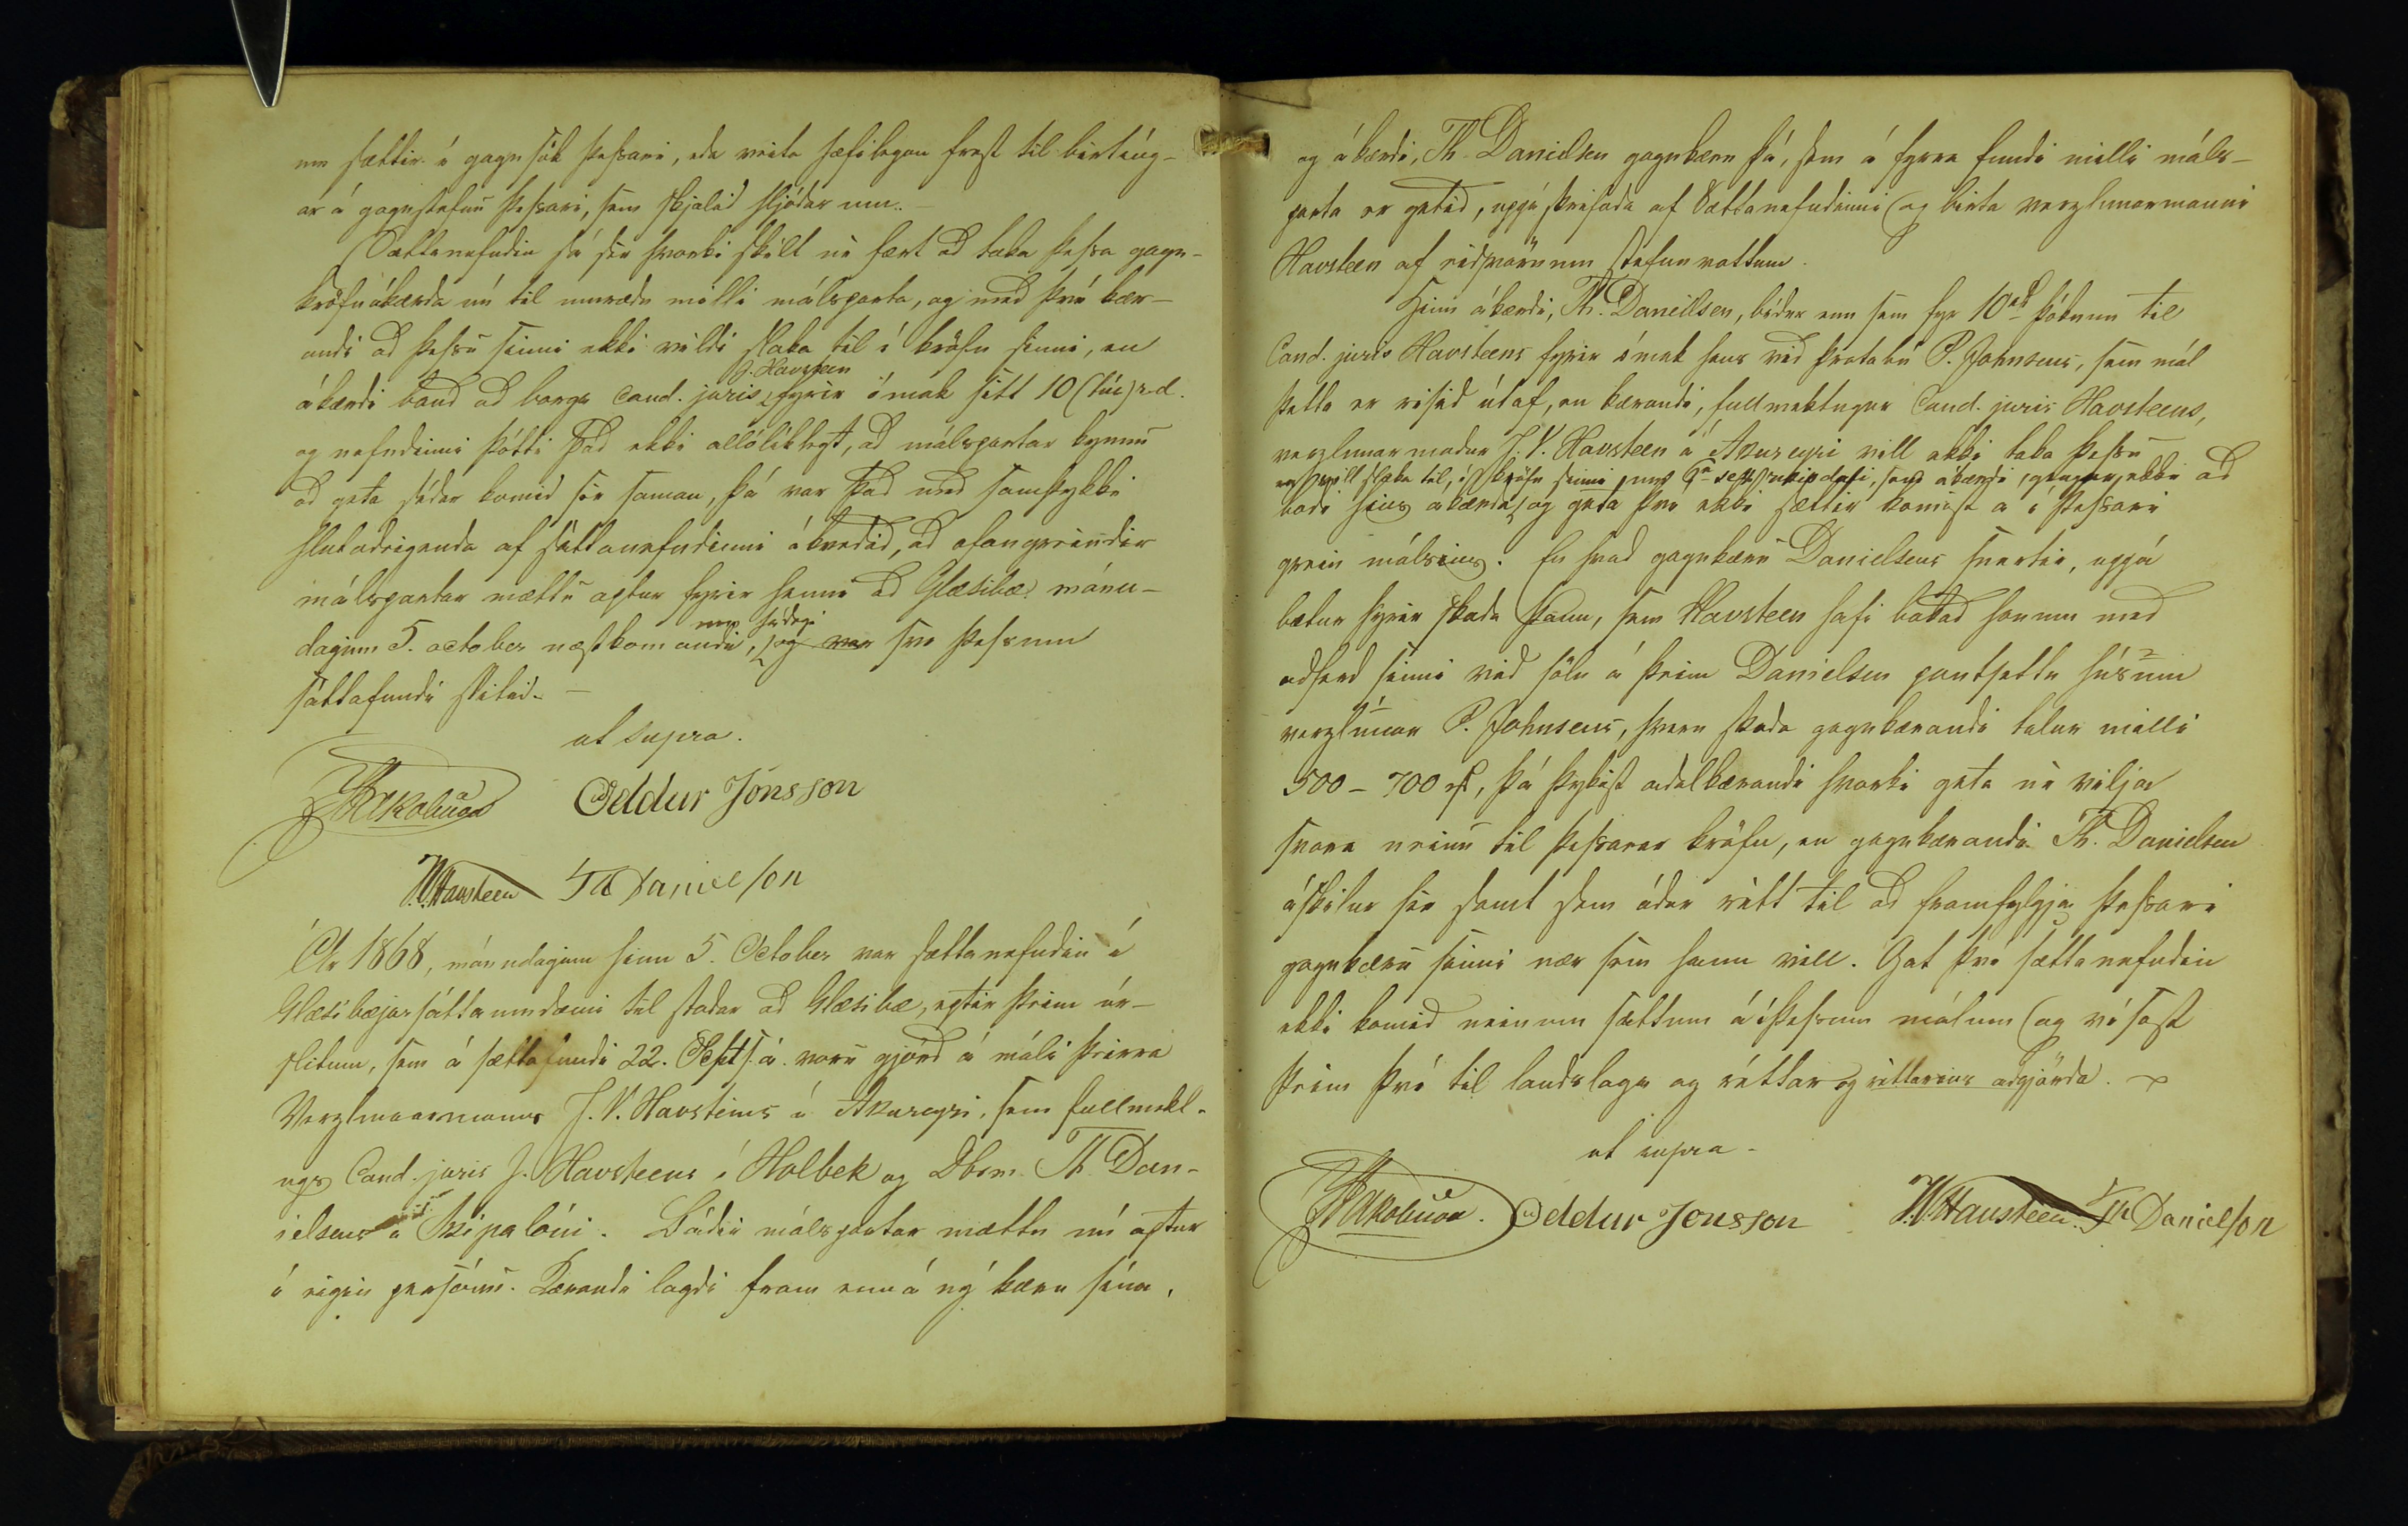 um sættir í gagnsök þessari, eda veita hæfilegan frest til birtíng-
ar á gagnstefnu þessari, sem skjalid hljódar um. –
Sættanefndin sá sér hvorki skilt né fært ad taka þessa gagn-
kröfu ákærda nú til umrædu milli málsparta, og med því kær-
andi ad þessu sinni ekki vildi slaka til í kröfu sinni, en
J. Havsteen
ákærdi baud ad borga Cand. juris fyrir ómak sitt 10 (tíu) rd.
og nefndinni þótti Þad ekki allólíklegt, ad málspartar kynnu
ad geta sídar komid sér saman, þá var Þad med samþykki
hlutadeigenda af sáttanefndinni ákvedid, ad ofangreindir
málspartar mættu aptur fyrir henni ad Glæsibæ mánu-
um hádegi
daginn 5. october næstkomandi, og var svo þessum
sáttafundi slitid. –
ut supra.
Oddur Jónsson
J.V. Havsteen Th Danielson
Ár 1868, mánudaginn hinn 5. October var sættanefndin í
Glæsibæjar sáttaumdæmi til stadar ad Glæsibæ, eptir þeim úr-
slitum, sem á sættafundi 22. Sept s. á. voru gjörd á máli þeirra
Verzlunarmanns J. V. Havsteens á Akureyri, sem fullmekt-
ugs Cand. juris J. Havsteens í Holbek og Dbrm. Th. Dan-
ielsens á Skipalóni. Bádir málspartar mættu nú aptur
í eigin persónu. Kærandi lagdi fram enn á ný kæru sína,
og ákærdi, Th. Danielsen gagnkæru þá, sem á fyrra fundi milli máls-
parta er getid, uppá skrifada af Sættanefndinni og birta verzlunarmanni
Havsteen af eidsvörnum stefnuvottum.
Hinn ákærdi, Th. Danielsen, bídur enn sem fyr 10 rd þóknun til
Cand. juris Havsteens fyrir ómak hans vid þrotabú P. Johnsens, sem mál
þetta er risid útaf, en kærandi, fullmektugur Cand. juris Havsteens,
verzlunarmadur J. V. Havsteen á Akureyri vill ekki taka þessu
en vill slaka til, í kröfu sinni um skipdali, sem ákærdi, gengur ekki ad
bodi hins ákærda, og geta því ekki sættir komist á í þessari
grein málsins. En hvad gagnkæru Danielsens snertir, uppá
bætur fyrir skada þann, sem Havsteen hafi bakad honum med
adferd sinni vid sölu á þeim Danielsen pantsettu húsum
verzlunar P. Johnsens, hvern skada gagnkærandi telur milli
500 – 700 rd, þá þykist adalkærandi hvorki geta né vilja
svara neinu til þessarar kröfu, en gagnkærandi Th. Danielsen
áskilur sér samt sem ádur rétt til ad framfylgja þessari
gagnkæru sinni nær sem hann vill. Gat því sættanefndin
ekki komid neinum sættum á í þessum málum og vísast
þeim því til landslaga og réttar og rettarins adgjörda.
ut supra –
Oddur Jonsson J.V. Havsteen. Th Danielson